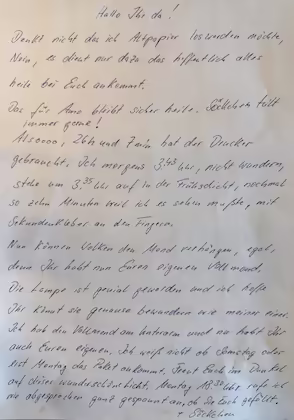 Hallo Ihr da!
Denkt nicht das ich Altpapier loswerden möchte,
Nein, es dient nur dazu das hoffentlich alles
heile bei Euch ankommt.
Das für Arno bleibt sicher heile. Söckchen fällt
immer gerne!
Alsooo, 26h und 7min hat der Drucker
gebraucht. Ich morgens 3:45 Uhr, nicht wundern,
stehe um 3:35 Uhr auf in der Frühschicht, nochmal
so zehn Minuten weil ich es sehen mußte, mit
Sekundenkleber an den Fingern.
Nun können Wolken den Mond verhängen, egal,
denn Ihr habt nun Euren eigenen Vollmond.
Die Lampe ist genial geworden und ich hoffe
Ihr könnt sie genauso bewundern wie meiner einer.
Ich hab den Vollmond am und nu habt Ihr
auch Euren eigenen. Ich weiß nicht ob Samstag oder
erst Montag das Paket ankommt. Freut Euch im Dunkeln
auf dieses wunderschöne Licht. Montag 18:30 Uhr rufe ich
wie abgesprochen ganz gespannt an, ob sie Euch gefällt.
+ Söckchen